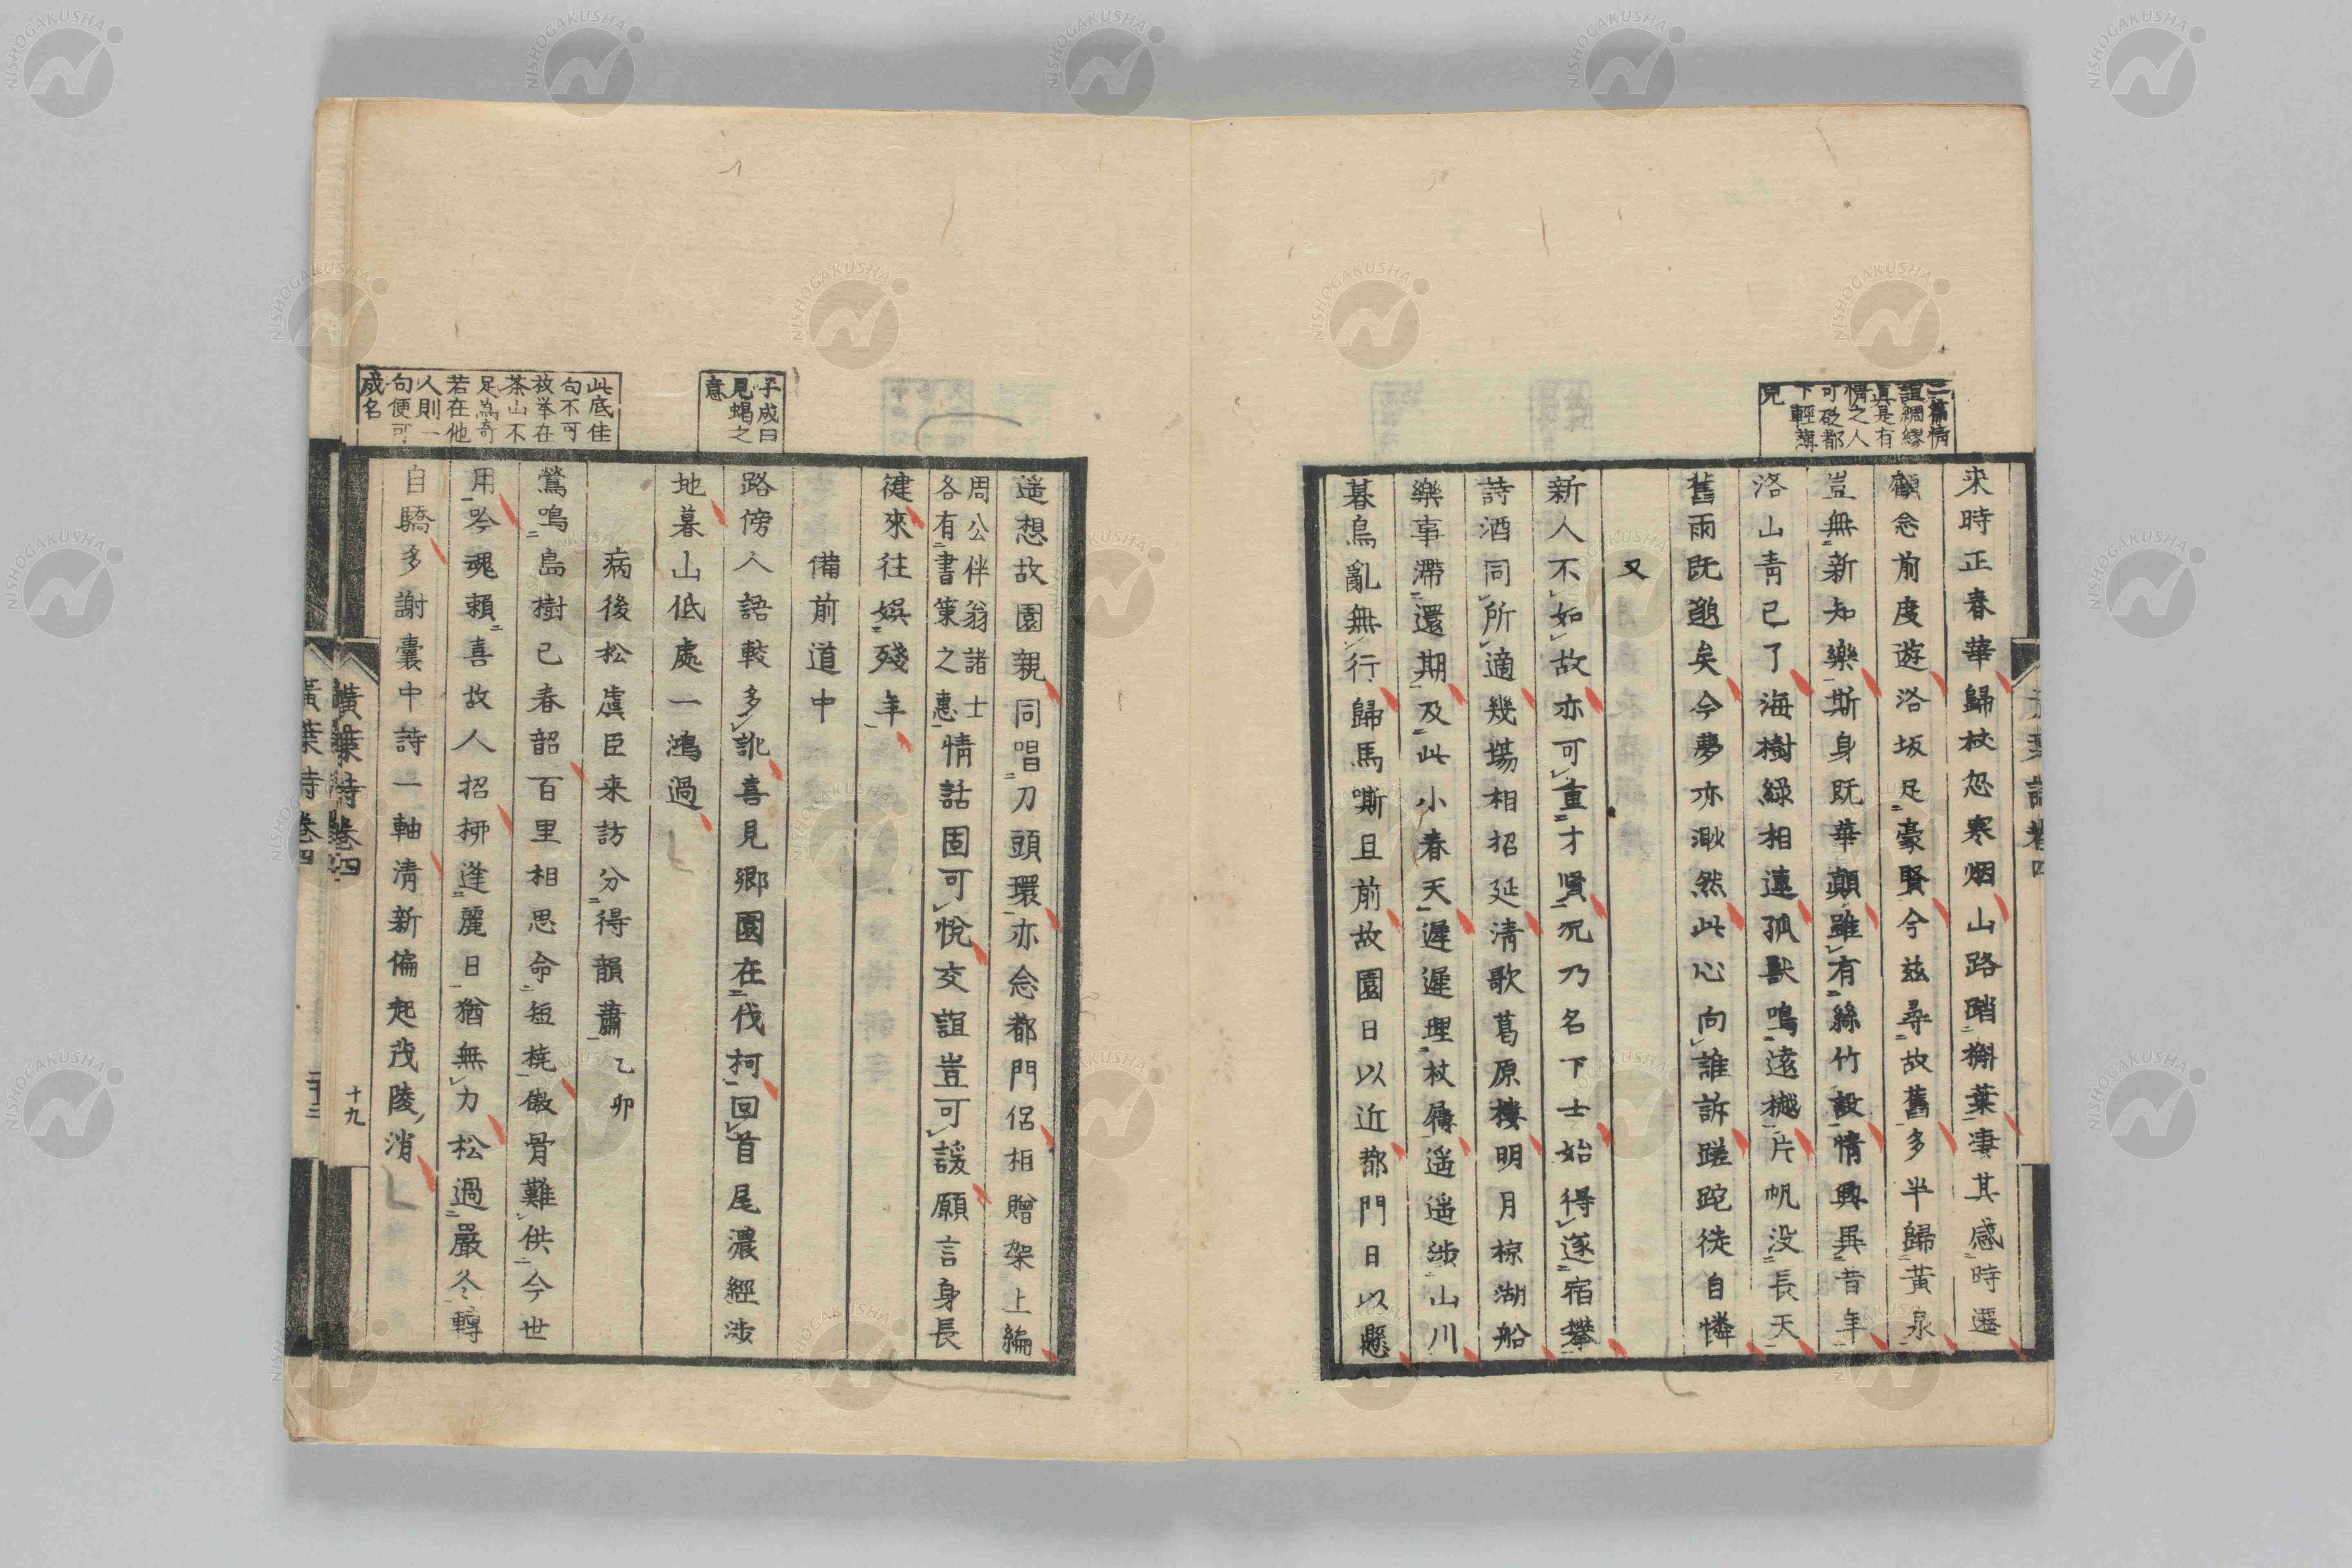 二篇情
誼綢繆
真是有
情之人
可砭都
下輕薄
兒
来時正春華歸杖忽寒烟山路踏槲葉凄其感時遷
顧念前度遊洛坂足豪賢今茲尋故舊多半歸黄泉
豈無新知樂斯身既華顛雖有絲竹設情興異昔年
洛山青已了海樹緑相連孤獸鳴遠樾片帆没長天
舊雨既邈矣今夢亦渺然此心向誰訴蹉跎徒自憐
又
新人不如故亦可重才賢况乃名下士始得遂宿攀
詩酒同所適幾場相招延清歌葛原樓明月椋湖船
樂事滞還期及此小春天遲遲理杖屨遥遥渉山川
暮烏亂無行歸馬嘶且前故園日以近都門日以懸
遥想故園親同唱刀頭環亦念都門侶相贈架上編
周公伴翁諸士
各有書策之惠
情話固可悅交誼豈可諼願言身長
健來往娯殘年
備前道中
子成曰
見蝎之
意
路傍人語較多訛喜見郷園在伐柯回首尾濃經渉
地暮山低處一鴻過
病後松虞臣来訪分得韻蕭乙卯
此底佳
句不可
枚挙在
茶山不
足為奇
若在他
人則一
句便可
成名
鶯鳴島樹已春韶百里相思命短橈傲骨難供今世
用吟魂頼喜故人招挷逢麗日猶無力松過嚴冬轉
自驕多謝囊中詩一軸清新偏起茂陵消
黄葉詩巻四
十九